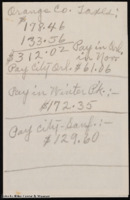 Orange Co. Taxes:
$
178.46
133.56
$312.02 Pay in Orl.
in Nov
Pay City Orl. $61.86
Pay in Winter Pk:-
$172.35
Pay City-Sanf:-
$129.60